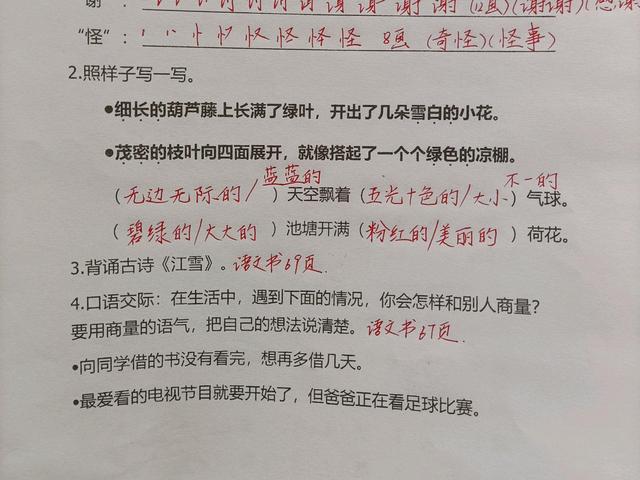 谢 (12画)(谢谢)(感谢
“怪”： 丶 丷 忄 怿 怪 怪 怪 8画 (奇怪)(怪事)
2.照样子写一写。
●细长的葫芦藤上长满了绿叶，开出了几朵雪白的小花。
●茂密的枝叶向四面展开，就像搭起了一个个绿色的凉棚。
（无边无际的/蓝蓝的）天空飘着（五光十色的/大小不一的）气球。
（碧绿的/大大的）池塘开满（粉红的/美丽的）荷花。
3.背诵古诗《江雪》。语文书69页.
4.口语交际：在生活中，遇到下面的情况，你会怎样和别人商量？
要用商量的语气，把自己的想法说清楚。语文书67页.
●向同学借的书没有看完，想再多借几天。
●最爱看的电视节目就要开始了，但爸爸正在看足球比赛。